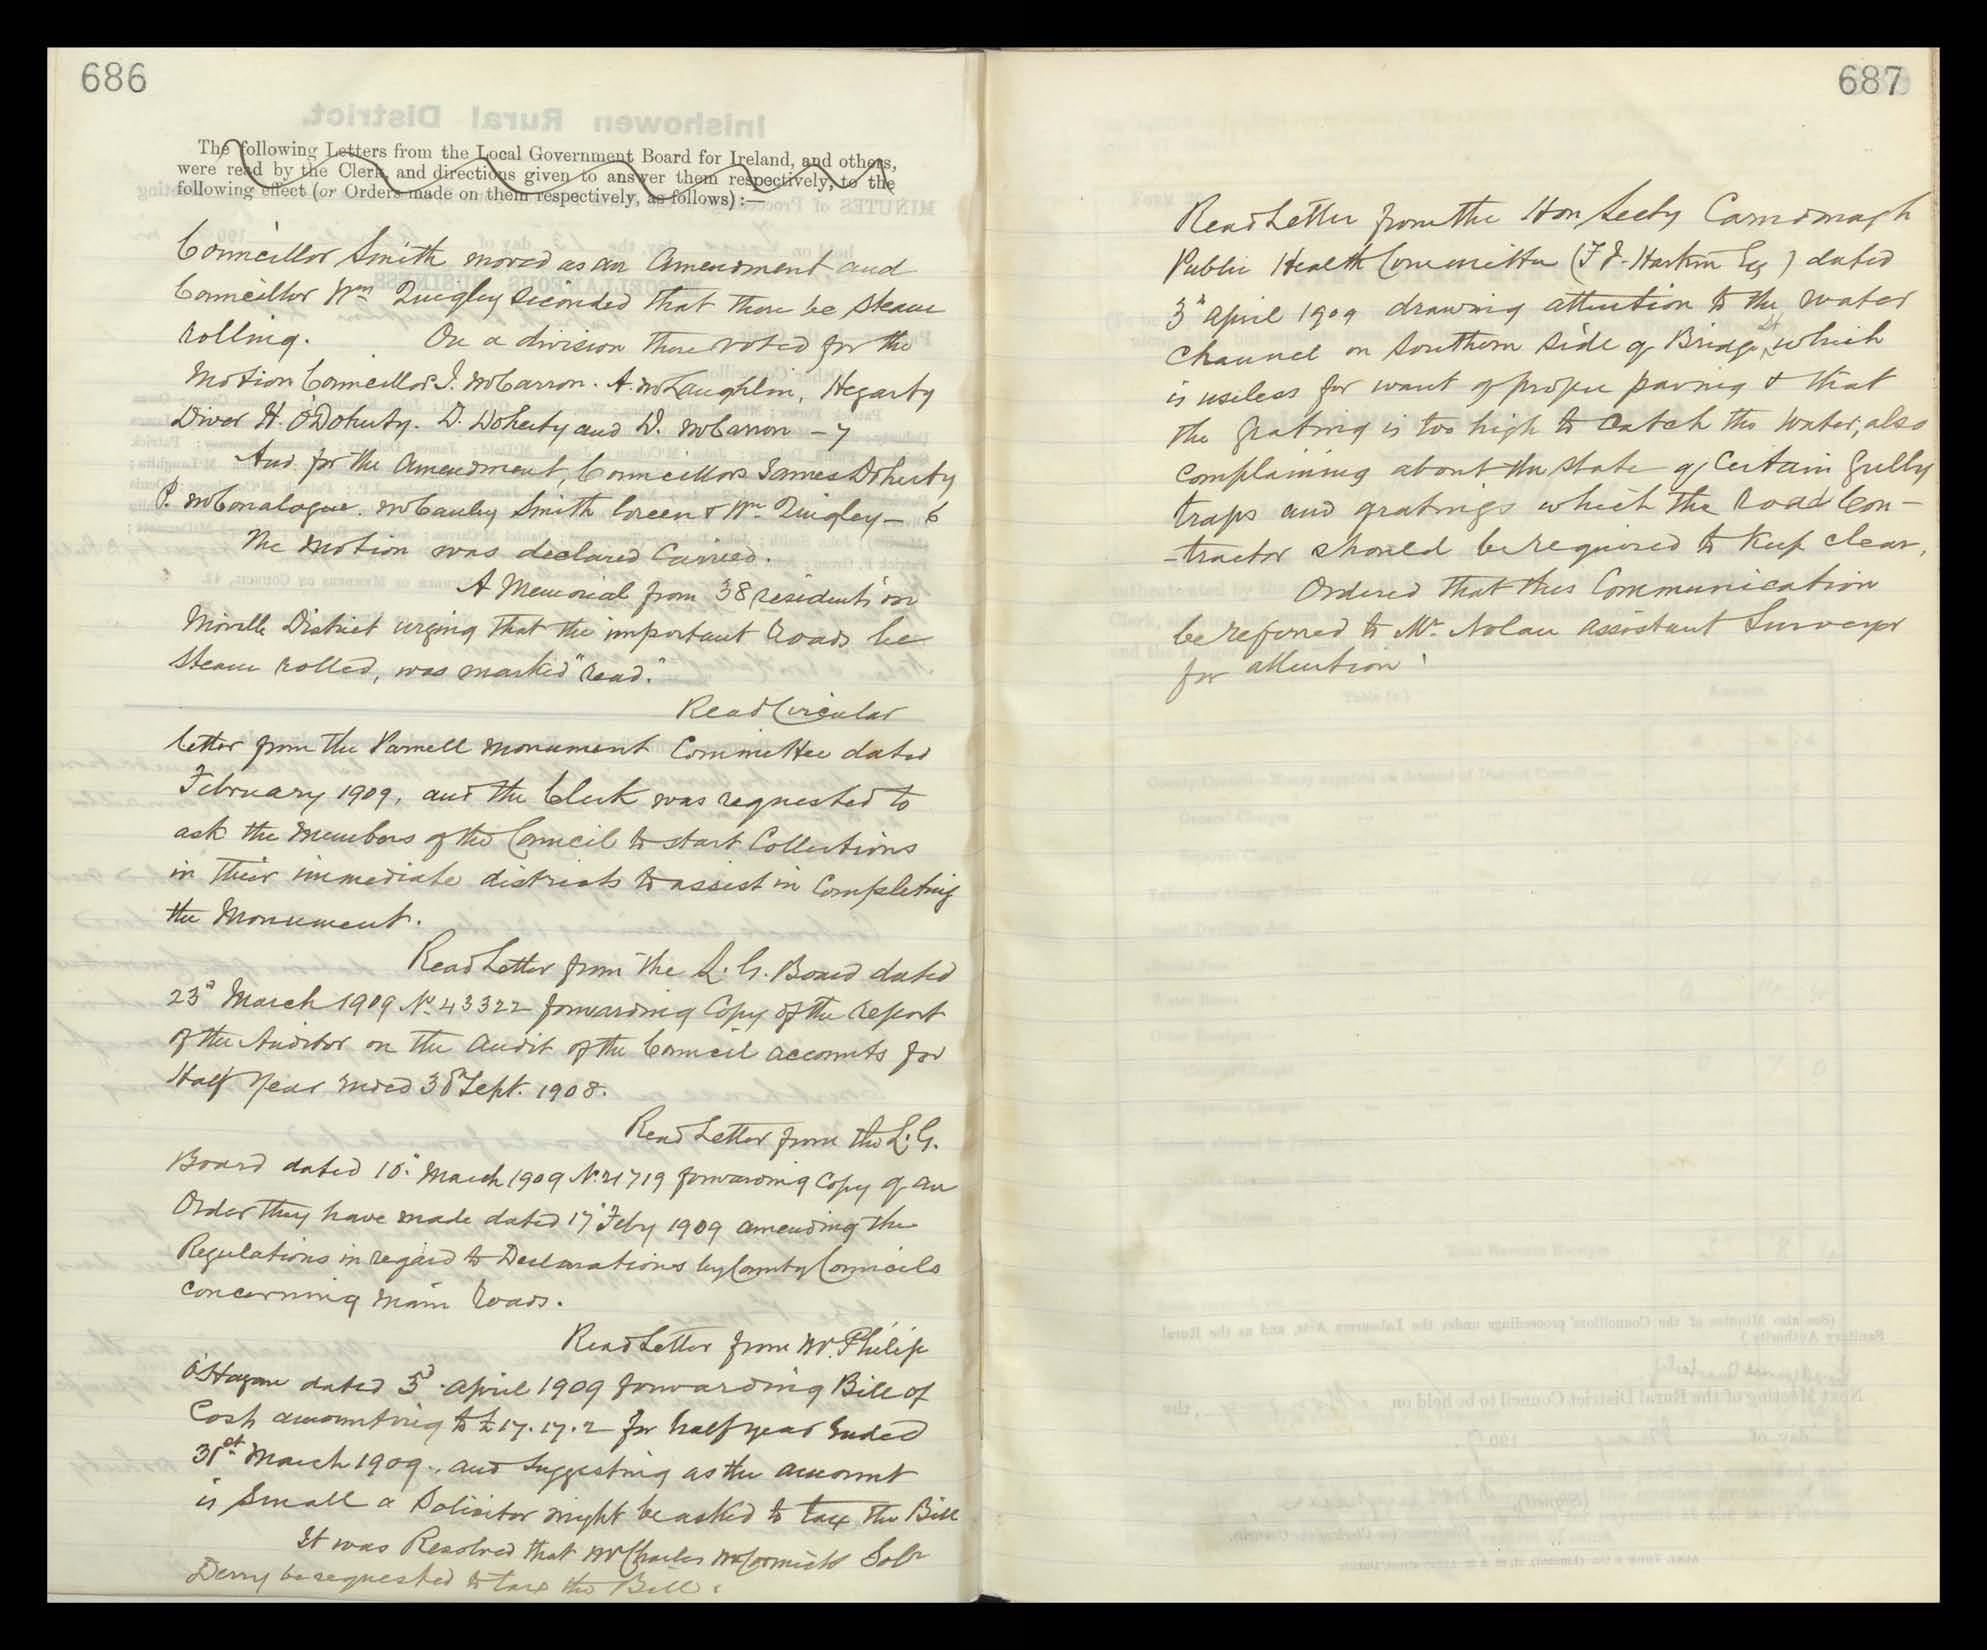 686
The following Letters from the Local Government Board for Ireland, and others,
were read by the Clerk, and directions given to answer them respectively, to the
following effect (or Orders made on them respectively, as follows) :—
Councillor Smith moved as an Amendment and
Councillor Wm Quigley seconded that there be steam
rolling. On a division there voted for the
Motion Councillors J. McCarron. A. McLaughlin, Hegarty
Diver H. O'Doherty. D. Doherty and D. McCarron – 7
And for the amendment, Councillors James Doherty
P. McConalogue. McCauley Smith Green & Wm Quigley – 6
The motion was declared carried.
A Memorial from 38 residents in
Moville District urging that the important roads be
steam rolled, was marked "read."
Read Circular
letter from the Parnell Monument Committee dated
February 1909, and the Clerk was requested to
ask the Members of the Council to start Collections
in their immediate districts to assist in Completing
the Monument.
Read Letter from the L. G. Board dated
23d March 1909 No 43322 forwarding Copy of the report
of the Auditor on the audit of the Council accounts for
Half Year ended 30th Sept. 1908.
Read Letter from the L. G.
Board dated March 1909 forwarding Copy of an
Order they have made dated 17th Feby 1909 amending the
Regulations in regard to Declarations by County Councils
concerning Main Roads.
Read Letter from Mr. Philip
O'Hagan dated 3d April 1909 forwarding Bill of
Costs amounting to £17.17.2 for half year ended
31st March 1909., and suggesting as the amount
is small a Solicitor might be asked to tax the Bill
It was Resolved that Mr Charles McCormick Solr
Derry be requested to tax the Bill.
687
Read Letter from the Hon Secty Carndonagh
Public Health Committee (F. J. Harkin Esq) dated
3d April 1909 drawing attention to the water
channel on Southern side of Bridge St which
is useless for want of proper paving & that
the grating is too high to catch the water, also
complaining about the state of certain gully
traps and gratings which the road Con-
-tractor should be required to keep clear.
Ordered that this Communication
be referred to Mr. Nolan assistant Surveyor
for attention.